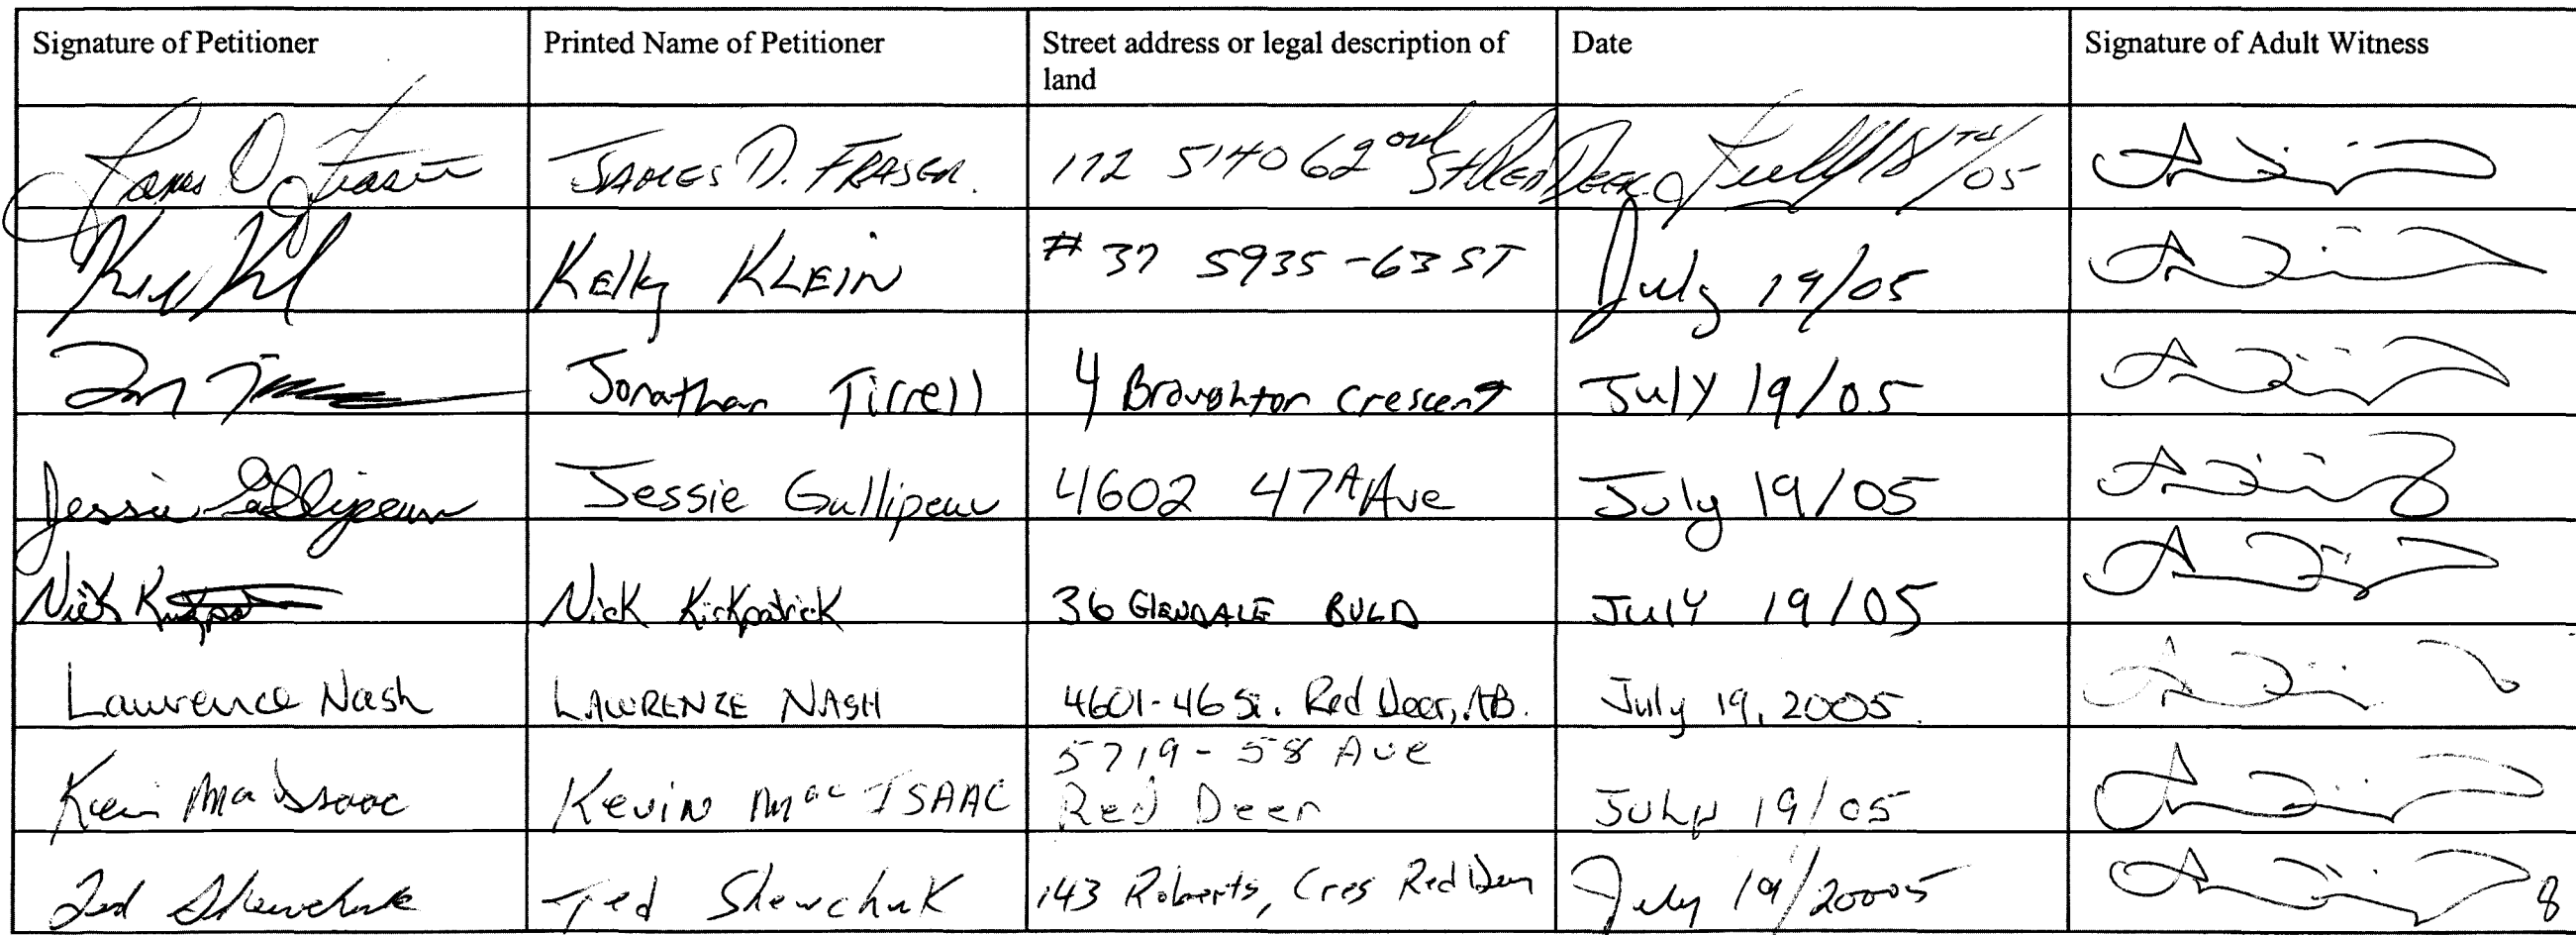 Signature of Petitioner Printed Name of Petitioner Street address or legal description of land Date Signature of Adult Witness
James D Fraser JAMES D. FRASER. 112 5140 62nd St Red Deer July 18TH/05
Kelly KLEIN # 37 5935-63 ST July 19/05
Jonathan Tirrell 4 Broughton Crescent July 19/05
Jessie Gallipeau Jessie Gallipeau 4602 47A Ave July 19/05
Nick Nick Kirkpatrick 36 GLENDALE BULD July 19/05
Lawrence Nash LAWRENCE NASH 4601-46 St. Red Deer, AB. July 19, 2005.
Kevin MacIsaac Kevin Mac ISAAC 5719 - 58 Ave Red Deer July 19/05
Ted Shewchuk Ted Shewchuk 143 Roberts, Cres Red Deer July 19/20005
8